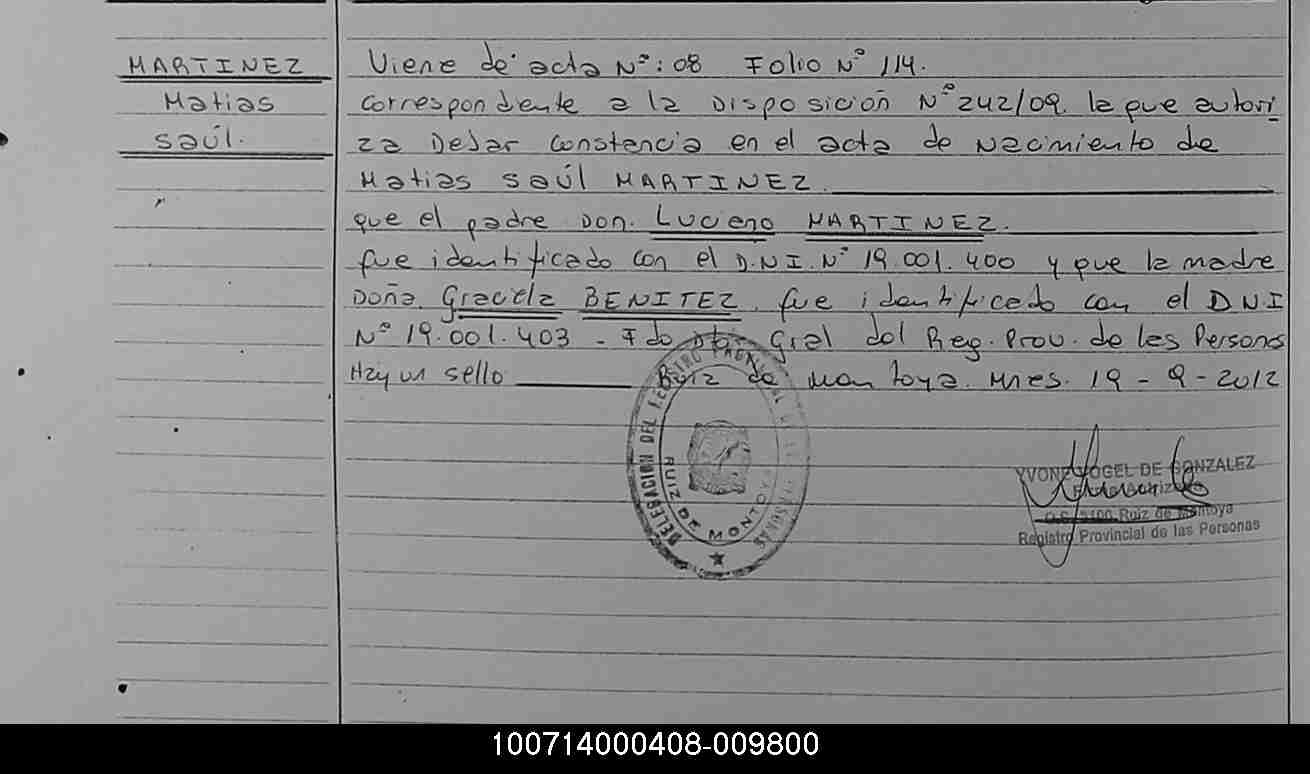 MARTINEZ
Matias
saúl.
Viene de acta Nº: 08 Folio Nº 114.
correspondiente a la Disposición Nº 242/09 la que autori
za Dejar constancia en el acta de nacimiento de
Matias saúl MARTINEZ.
que el padre Don. Luciano MARTINEZ.
fue identificado con el D.N.I. Nº 19.001.400 y que la madre
Doña. Graciela BENITEZ, fue identificado con el D.N.I
Nº 19.001.403 - Fdo Gral del Reg. Prov. de las Personas
Hay un sello Ruiz de Montoya. Mnes. 19 - 9 - 2012
DELEGACION DEL REGISTRO PROVINCIAL DE LAS PERSONAS
RUIZ DE MONTOYA
YVONE VOGEL DE GONZALEZ
O.S. 3100 Ruiz de Montoya
Registro Provincial de las Personas
100714000408-009800